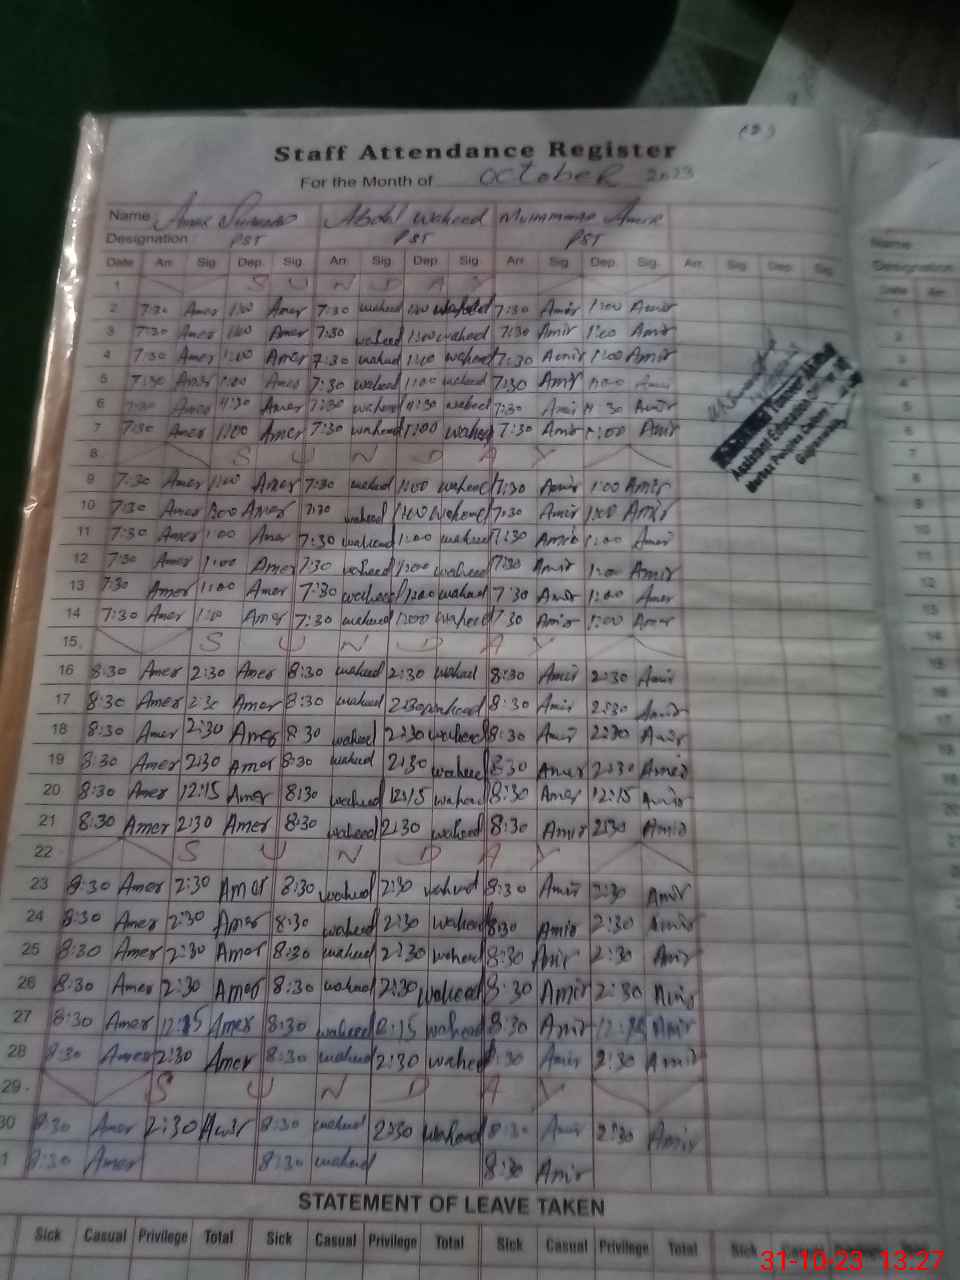 (2)
Staff Attendance Register
For the Month of October 2023
Name Amer Abdul Waheed Muhammad Amir
Designation PST PST PST
Date Arr. Sig. Dep. Sig. Arr. Sig. Dep. Sig. Arr. Sig. Dep. Sig. Arr. Sig. Dep. Sig.
1 S U N D A Y
2 7:30 Amer 1:00 Amer 7:30 waheed 1:00 waheed 7:30 Amir 1:00 Amir
3 7:30 Amer 1:00 Amer 7:30 waheed 1:00 waheed 7:30 Amir 1:00 Amir
4 7:30 Amer 1:00 Amer 7:30 waheed 1:00 waheed 7:30 Amir 1:00 Amir
5 7:30 Amer 1:00 Amer 7:30 waheed 1:00 waheed 7:30 Amir 1:00 Amir
6 7:30 Amer 11:30 Amer 7:30 waheed 11:30 waheed 7:30 Amir 11:30 Amir
7 7:30 Amer 1:00 Amer 7:30 waheed 1:00 waheed 7:30 Amir 1:00 Amir
8 S U N D A Y
9 7:30 Amer 1:00 Amer 7:30 waheed 1:00 waheed 7:30 Amir 1:00 Amir
10 7:30 Amer Amer 7:30 waheed 1:00 waheed 7:30 Amir 1:00 Amir
11 7:30 Amer 1:00 Amer 7:30 waheed 1:00 waheed 7:30 Amir 1:00 Amir
12 7:30 Amer 1:00 Amer 7:30 waheed 1:00 waheed 7:30 Amir 1:00 Amir
13 7:30 Amer 1:00 Amer 7:30 waheed 1:00 waheed 7:30 Amir 1:00 Amer
14 7:30 Amer 1:00 Amer 7:30 waheed 1:00 waheed 7:30 Amir 1:00 Amer
15 S U N D A Y
16 8:30 Amer 2:30 Amer 8:30 waheed 2:30 waheed 8:30 Amir 2:30 Amir
17 8:30 Amer 2:30 Amer 8:30 waheed 2:30 waheed 8:30 Amir 2:30 Amir
18 8:30 Amer 2:30 Amer 8:30 waheed 2:30 waheed 8:30 Amir 2:30 Amir
19 8:30 Amer 2:30 Amer 8:30 waheed 2:30 waheed 8:30 Amir 2:30 Amir
20 8:30 Amer 12:15 Amer 8:30 waheed 12:15 waheed 8:30 Amer 12:15 Amir
21 8:30 Amer 2:30 Amer 8:30 waheed 2:30 waheed 8:30 Amir 2:30 Amir
22 S U N D A Y
23 8:30 Amer 2:30 Amer 8:30 waheed 2:30 waheed 8:30 Amir 2:30 Amir
24 8:30 Amer 2:30 Amer 8:30 waheed 2:30 waheed 8:30 Amir 2:30 Amir
25 8:30 Amer 2:30 Amer 8:30 waheed 2:30 waheed 8:30 Amir 2:30 Amir
26 8:30 Amer 2:30 Amer 8:30 waheed 2:30 waheed 8:30 Amir 2:30 Amir
27 8:30 Amer 12:15 Amer 8:30 waheed 12:15 waheed 8:30 Amir 12:15 Amir
28 8:30 Amer 2:30 Amer 8:30 waheed 2:30 waheed 8:30 Amir 2:30 Amir
29 S U N D A Y
30 8:30 Amer 2:30 Amer 8:30 waheed 2:30 waheed 8:30 Amir 2:30 Amir
1 8:30 Amer 8:30 waheed 8:30 Amir
Assistant Education Officer
STATEMENT OF LEAVE TAKEN
Sick Casual Privilege Total Sick Casual Privilege Total Sick Casual Privilege Total Sick
Name
Designation
Date
31-10-23 13:27